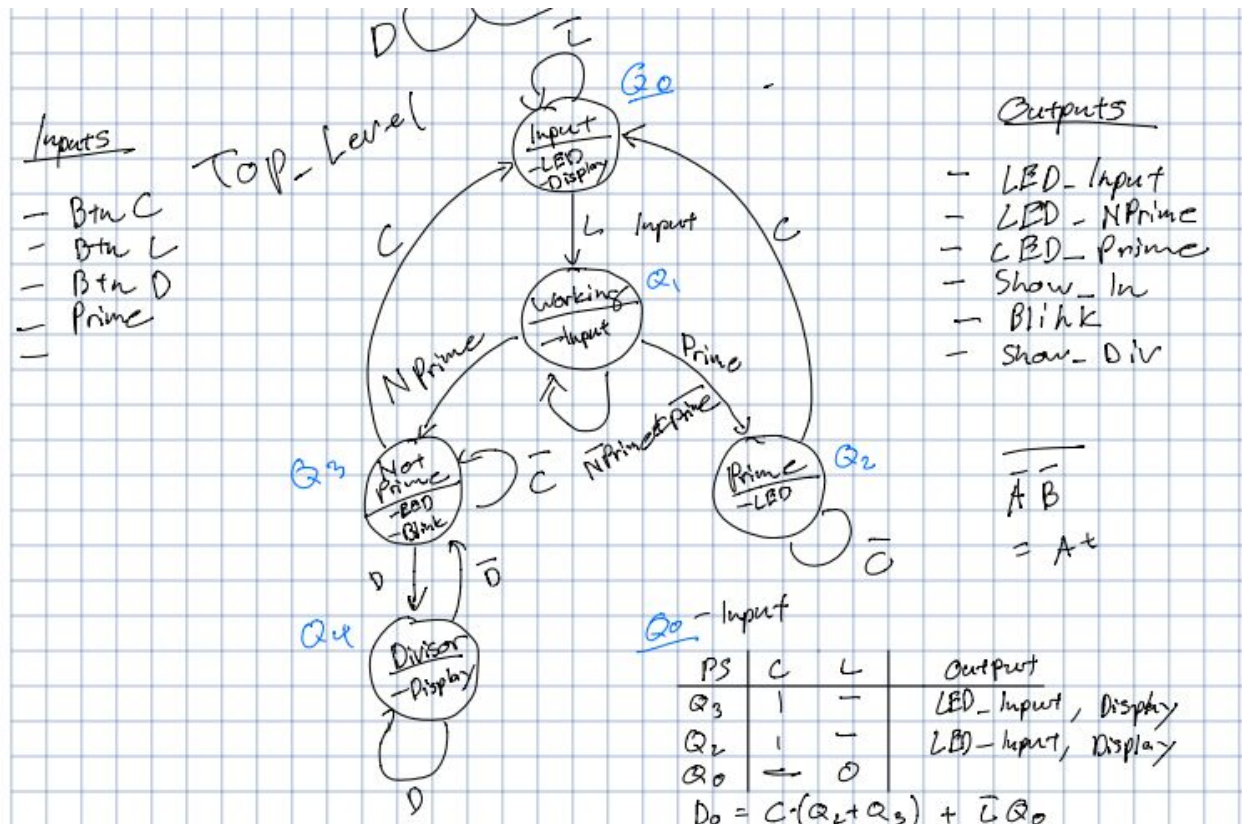 D
L̅
Q0
Inputs
- Btn C
- Btn L
- Btn D
- Prime
-
Top_Level
Input
-LED
-Display
C
L Input
C
Working
-Input
Q1
NPrime
Prime
N̅P̅r̅i̅m̅e̅ + P̅r̅i̅m̅e̅
Q3
Not
Prime
-LED
-Blink
C̅
Prime
-LED
Q2
C̅
D
D̅
Q4
Divisor
-Display
D
Outputs
- LED_Input
- LED_NPrime
- LED_Prime
- Show_In
- Blink
- Show_Div
A̅ B̅
= A +
Q0 - Input
PS C L Output
Q3 1 - LED_Input, Display
Q2 1 - LED_Input, Display
Q0 - 0
D0 = C·(Q2+Q3) + L̅ Q0